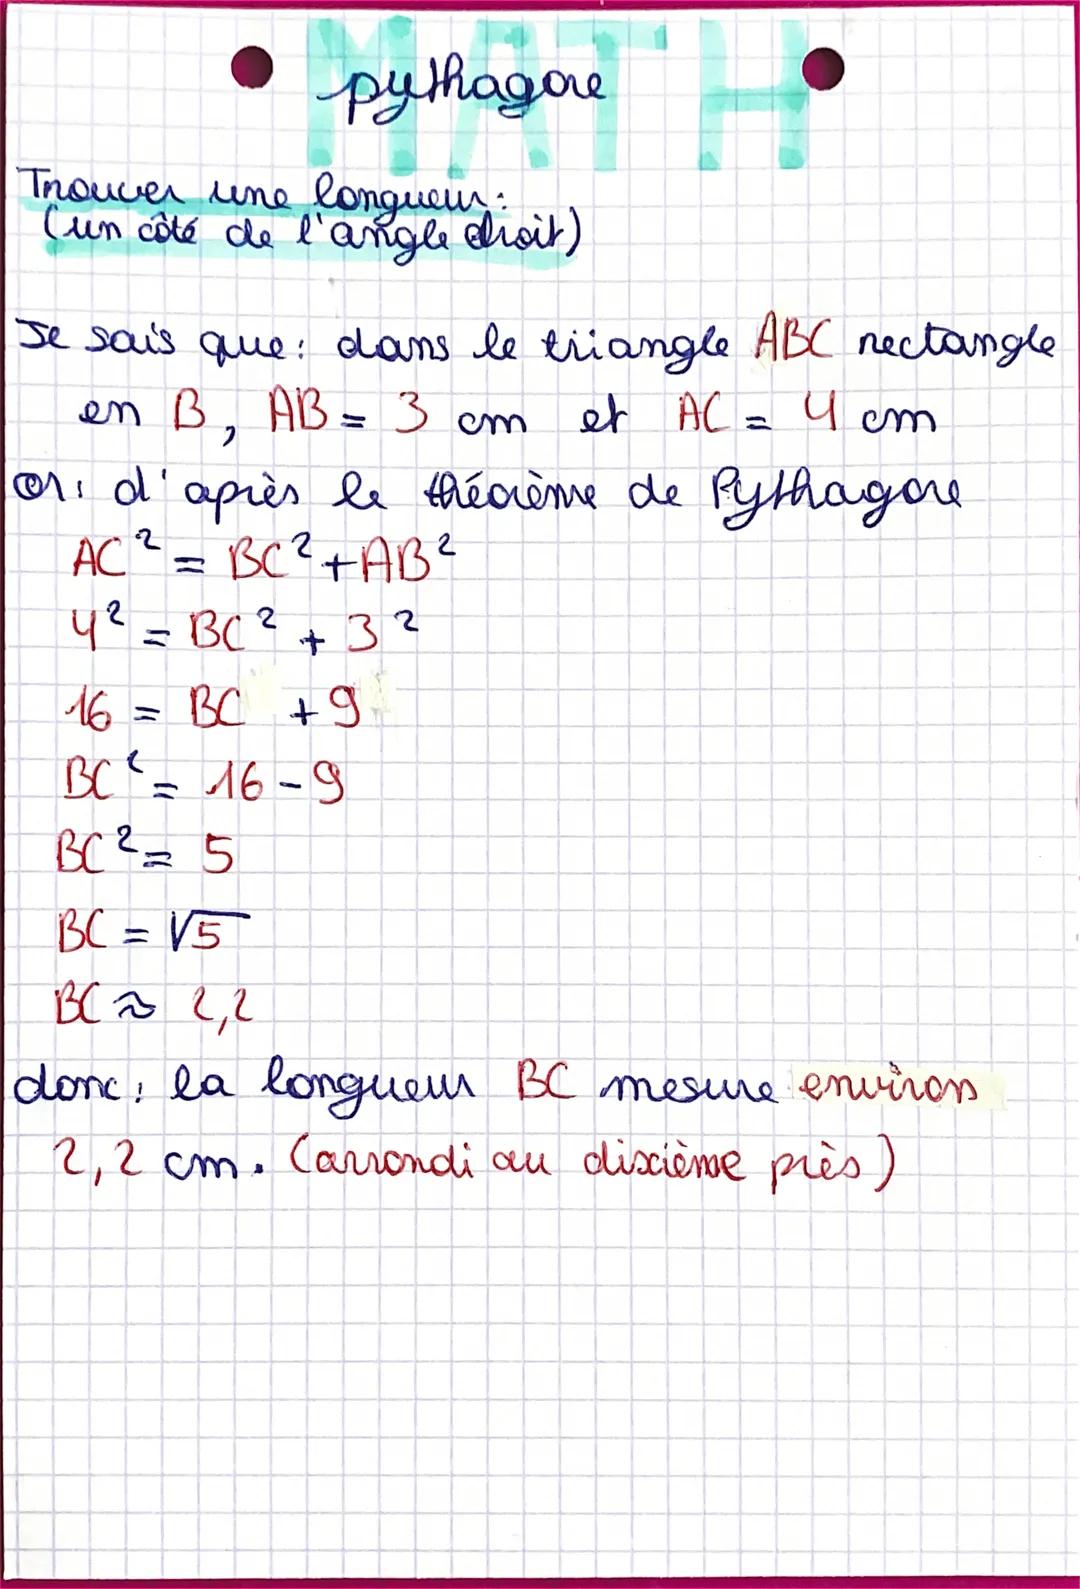 MATH
pythagore
Trouver une longueur :
(un côté de l'angle droit)
Je sais que : dans le triangle ABC rectangle
en B, AB = 3 cm et AC = 4 cm
or : d'après le théorème de Pythagore
AC² = BC² + AB²
4² = BC² + 3²
16 = BC + 9
BC² = 16 - 9
BC² = 5
BC = √5
BC ≈ 2,2
donc : la longueur BC mesure environ
2,2 cm. (arrondi au dixième près)